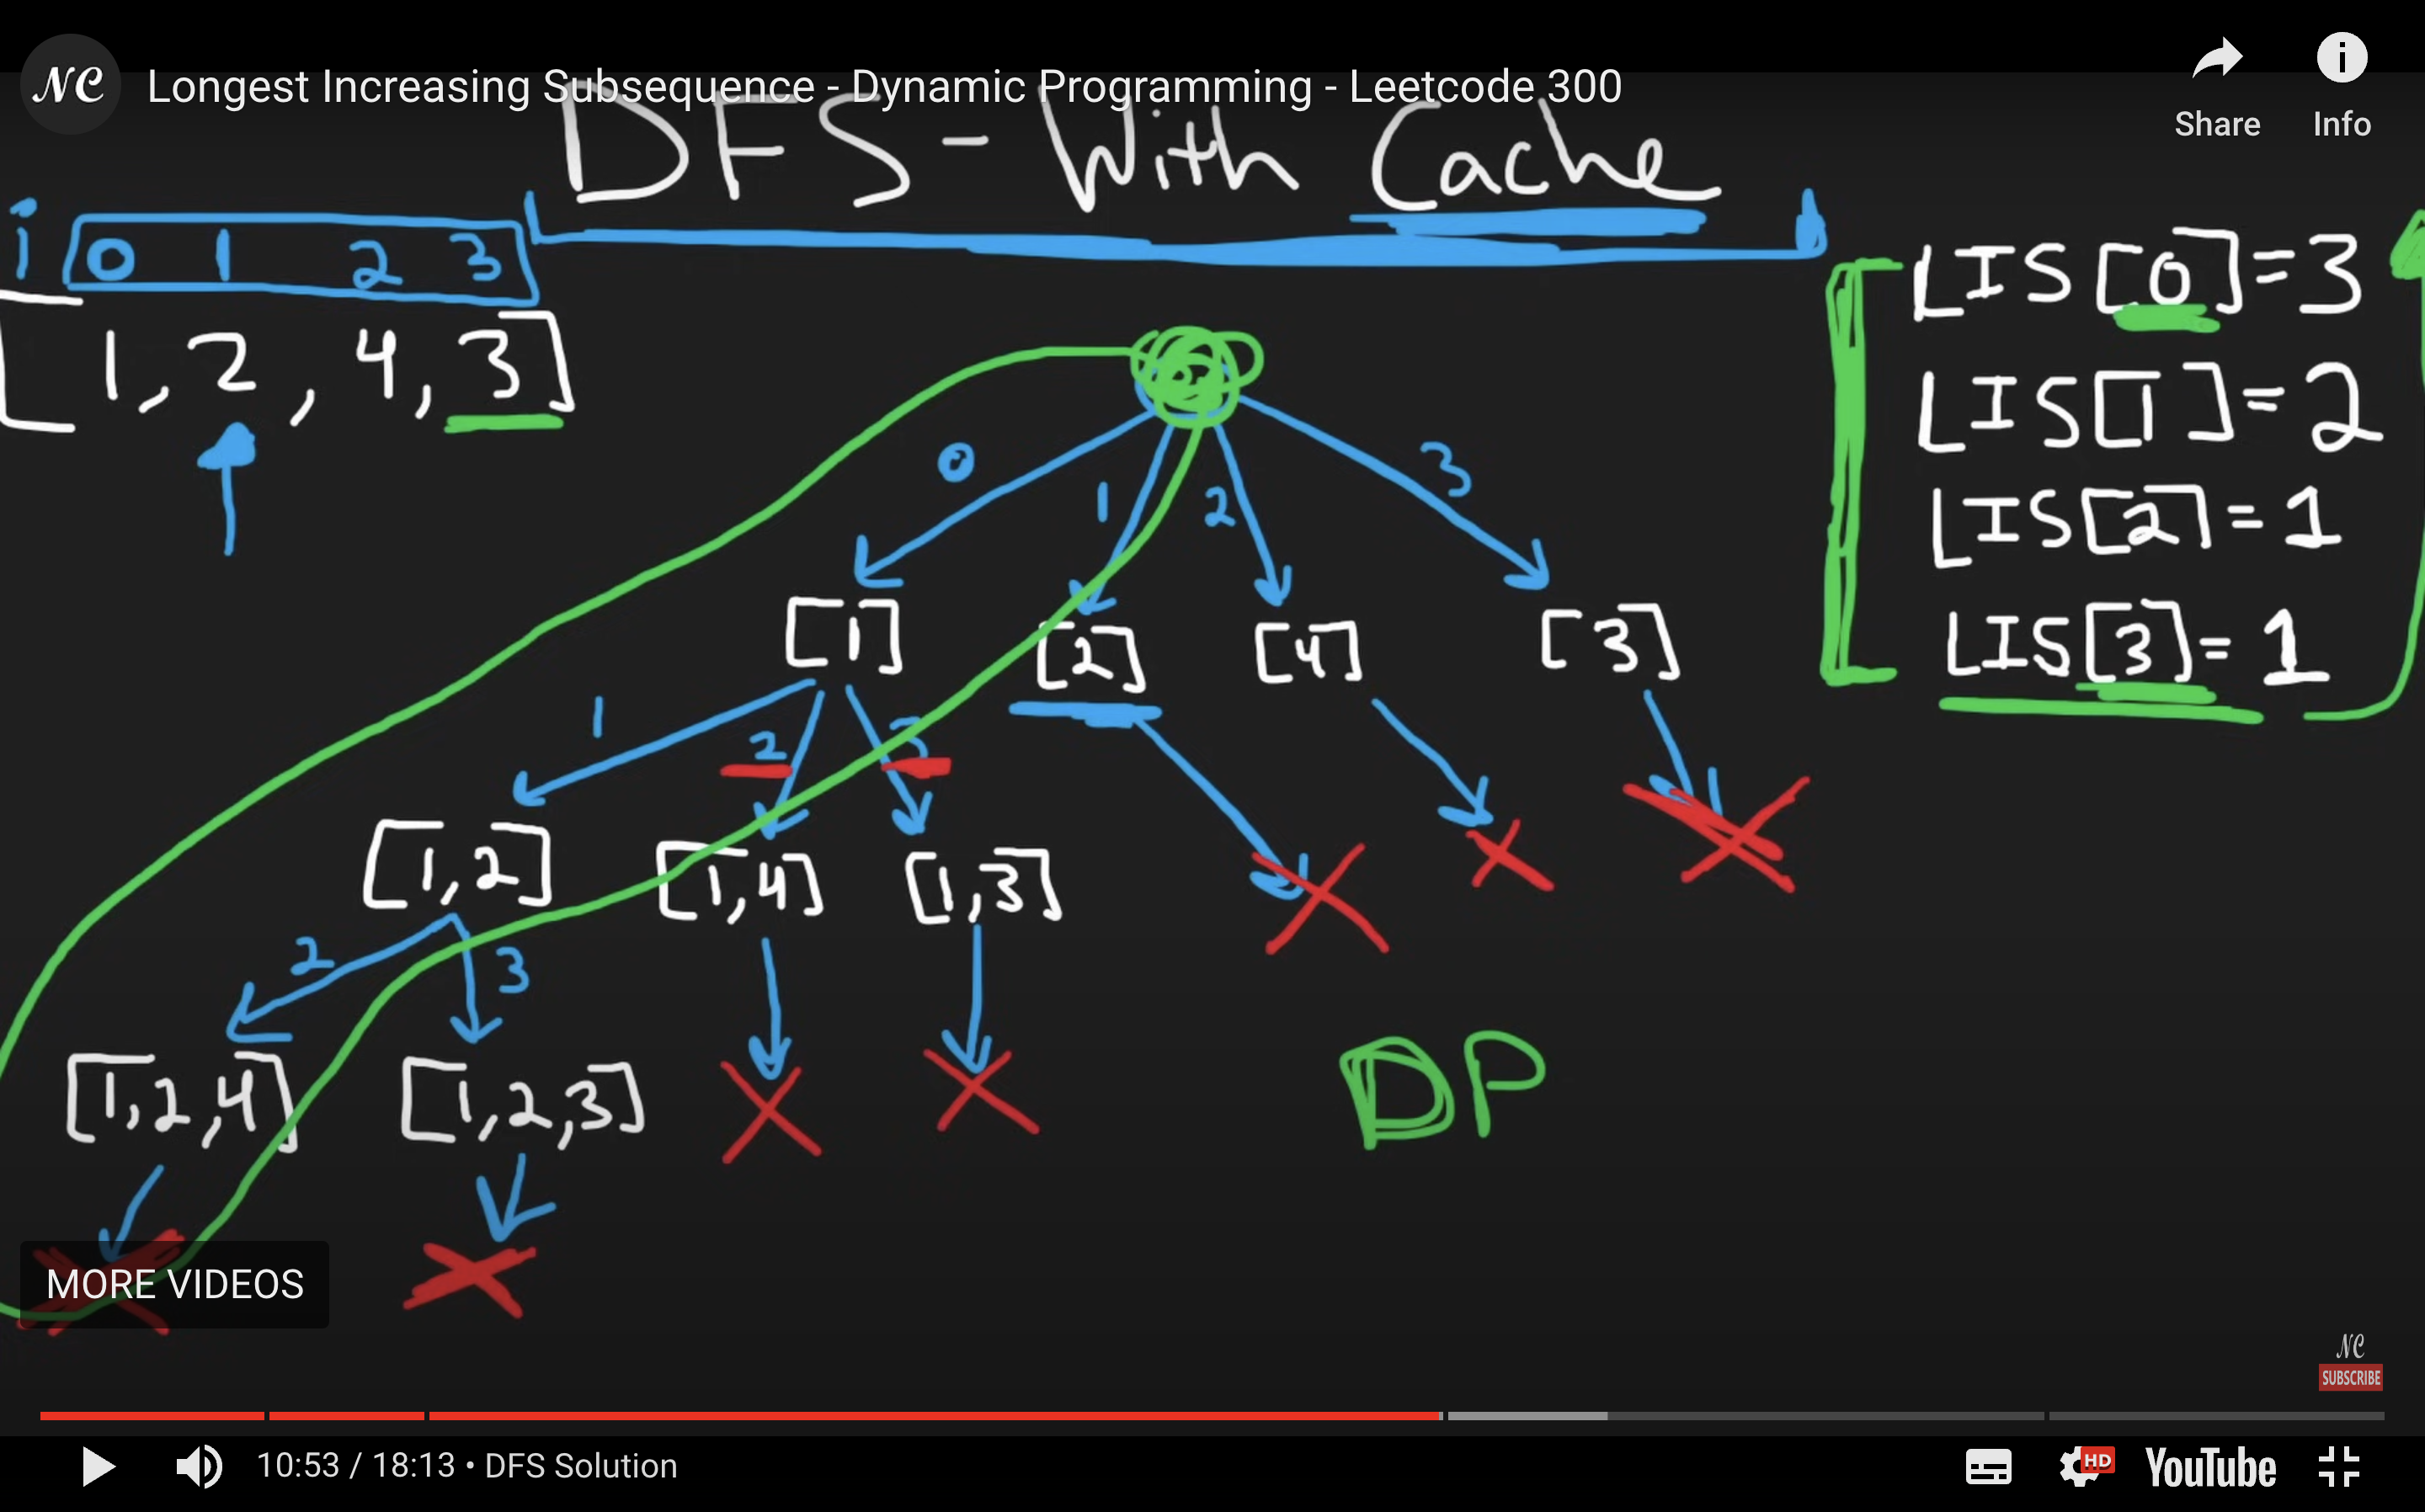 NC
Longest Increasing Subsequence - Dynamic Programming - Leetcode 300
Share
Info
DFS - With Cache
i 0 1 2 3
[1, 2, 4, 3]
LIS[0]=3
LIS[1]=2
LIS[2]=1
LIS[3]=1
0 1 2 3
[1] [2] [4] [3]
1 2 3
[1,2] [1,4] [1,3]
2 3
[1,2,4] [1,2,3]
DP
MORE VIDEOS
NC
SUBSCRIBE
10:53 / 18:13 • DFS Solution
HD
YouTube